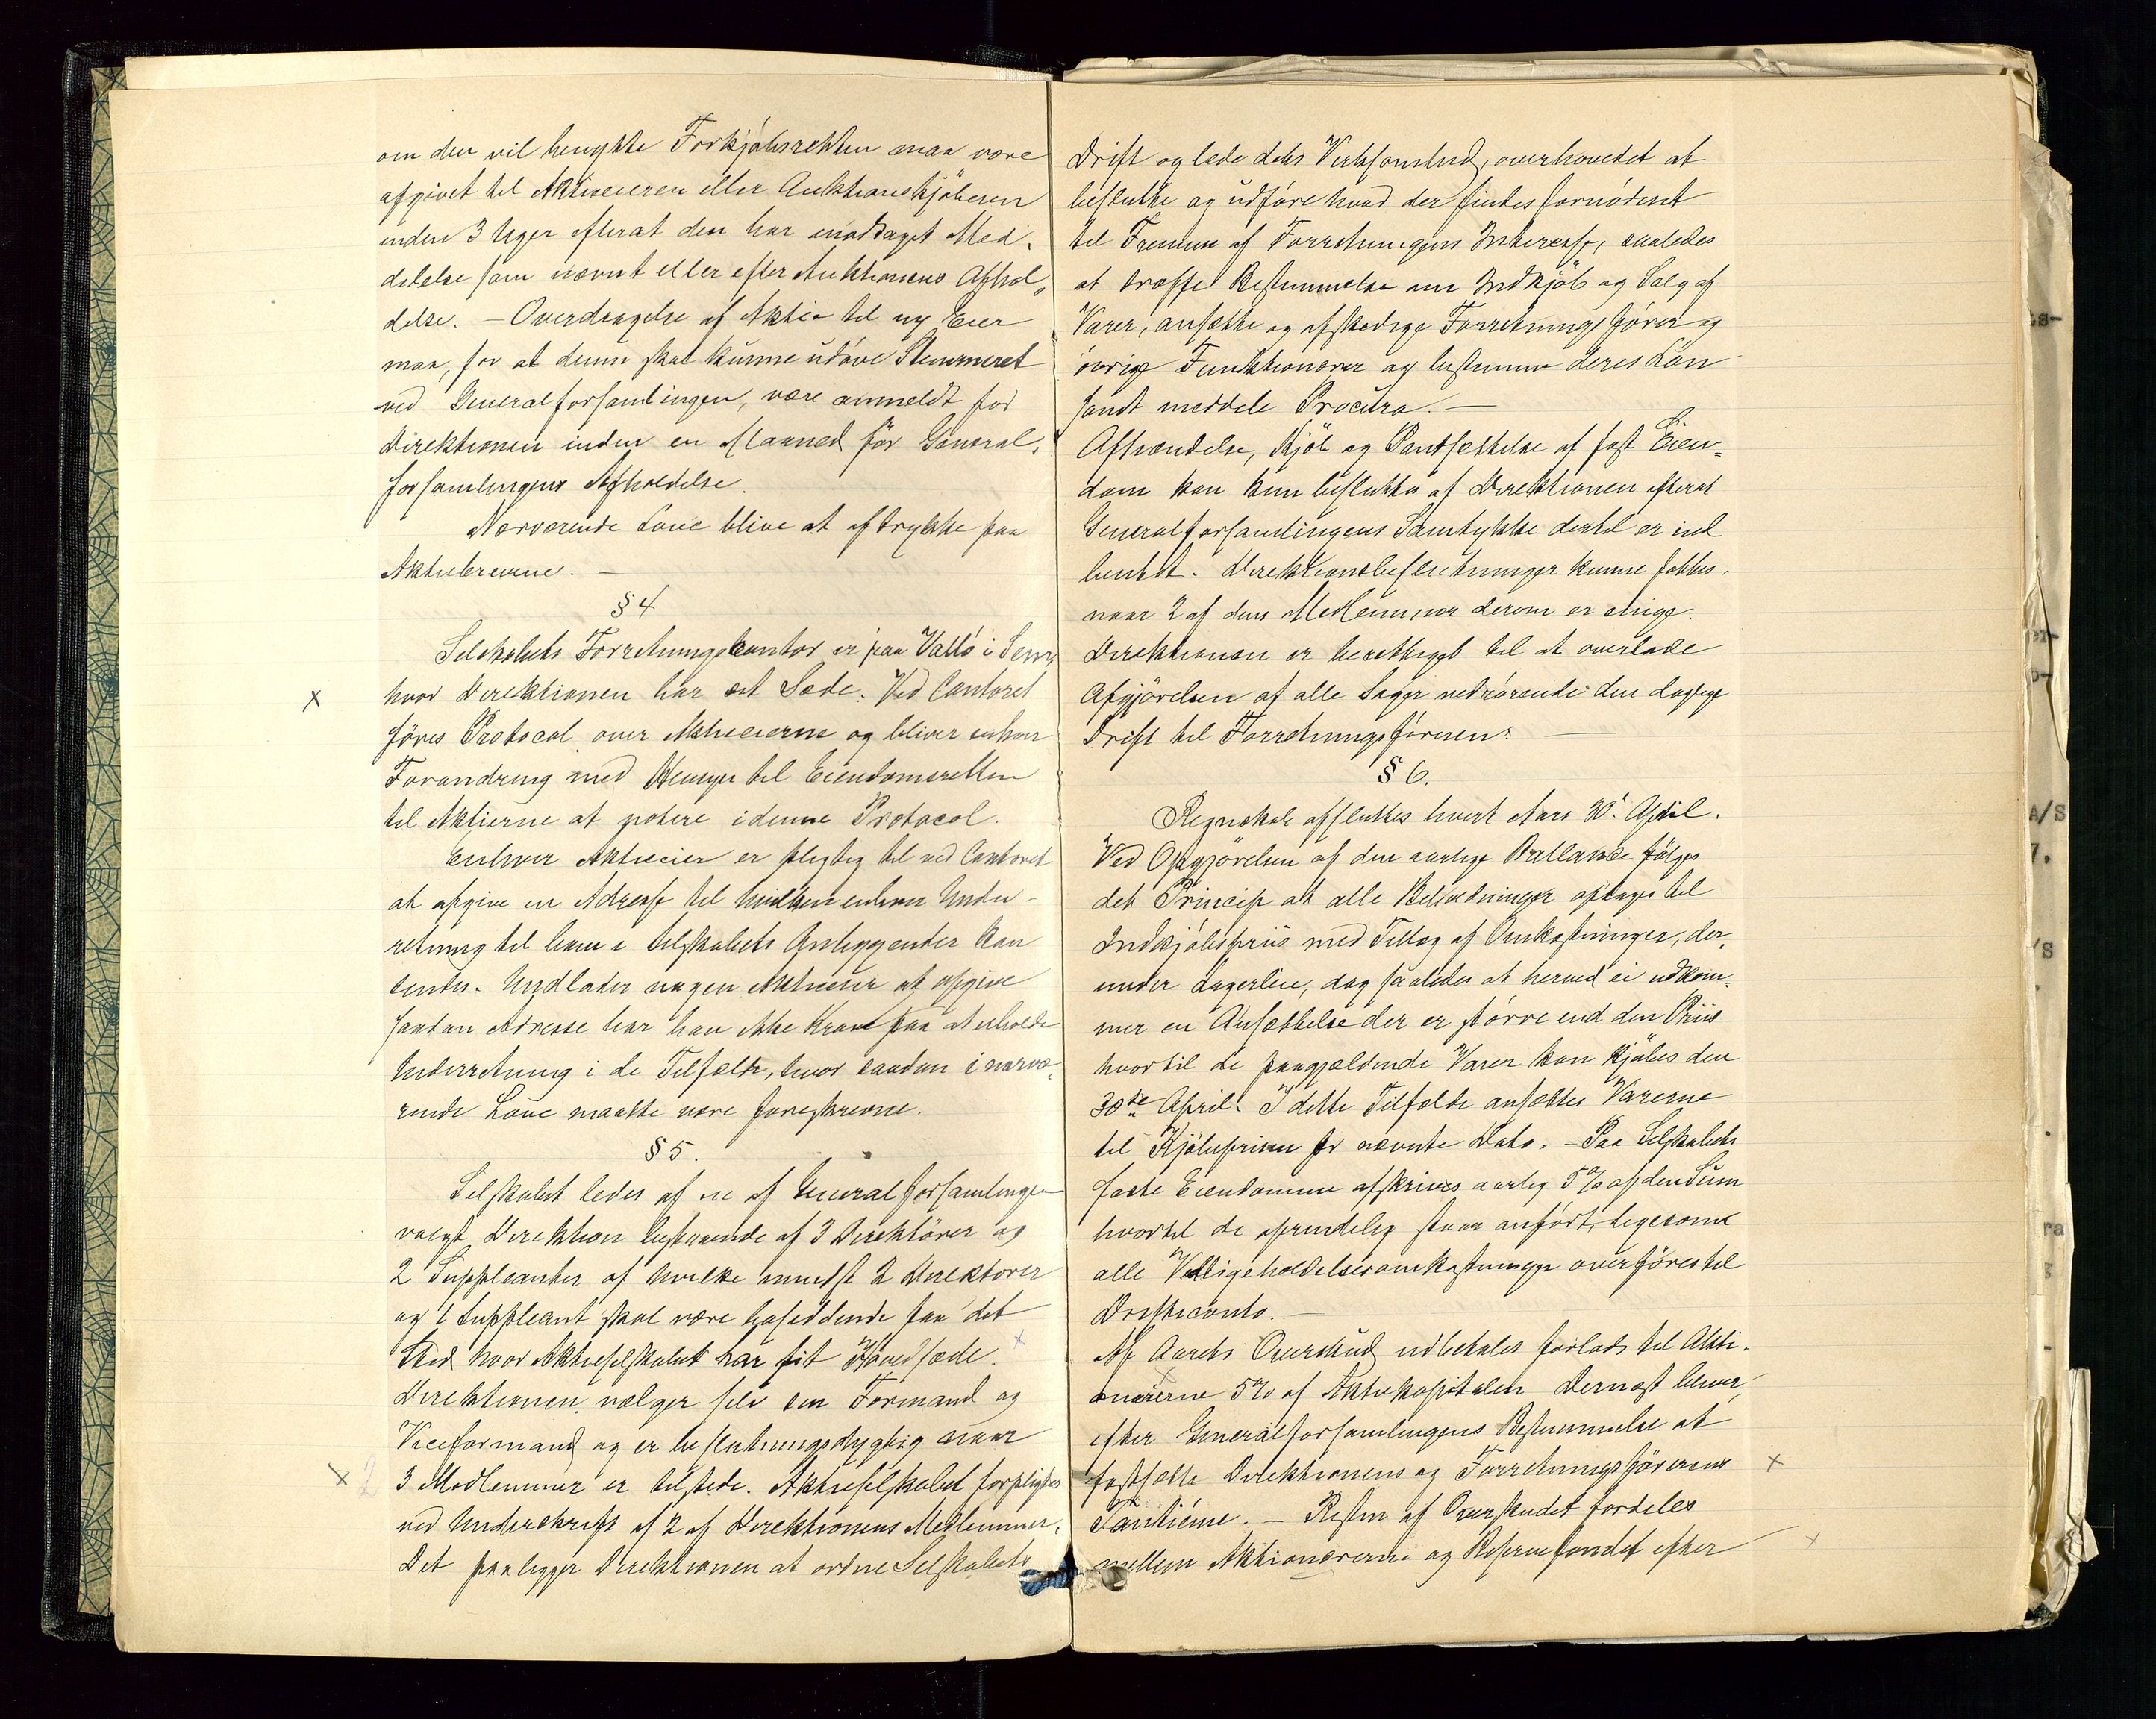 om den vil benytte Forkjöbsretten maa være
afgivet til Aktieeieren eller Auktionskjöberen
inden 3 Uger efterat den har modtaget Med-
delelse som nævnt eller efter Auktionens Afhol-
delse. – Overdragelse af Aktie til ny Eier
maa, for at denne skal kunne udöve Stemmeret
ved Generalforsamlingen, være anmeldt for
Direktionen inden en Maaned för General-
forsamlingens Afholdelse.
Nærværende Love blive at aftrykke paa
Aktiebrevene. –
§ 4
Selskabets Forretningskontor er paa Vallö i Sem,
hvor Direktionen har sit Sæde. Ved Contoret
föres Protocol over Aktieeierne og bliver enhver
Forandring med Hensyn til Eiendomsretten
til Aktierne at notere i denne Protocol.
Enhver Aktieeier er pligtig til ved Contoret
at opgive en Adresse til hvilken enhver Under-
retning til ham i Selskabets Anliggender kan
sendes. Undlader nogen Aktieeier at opgive
saadan Adresse har han ikke Krav paa at erholde
Underretning i de Tilfælde, hvor saadan i nærvæ-
rende Love maatte være foreskreven.
§ 5.
Selskabet ledes af en af Generalforsamlingen
valgt Direktion bestaaende af 3 Direktörer og
2 Suppleanter af hvilke mindst 2 Direktörer
og 1 Suppleant skal være bosiddende paa det
Sted hvor Aktieselskabet har sit Hovedsæde. x
Direktionen vælger selv sin Formand og
Viceformand og er beslutningsdygtig naar
x 2 3 Medlemmer er tilstede. Aktieselskabet forpligtes
ved Underskrift af 2 af Direktionens Medlemmer.
Det paaligger Direktionen at ordne Selskabets
Drift og lede dets Virksomhed, overhovedet at
beslutte og udföre hvad der findes fornödent
til Fremme af Forretningens Interesse, saaledes
at træffe Bestemmelse om Indkjöb og Salg af
Varer, ansætte og afskedige Forretningsförer og
övrige Funktionærer og bestemme deres Lön
samt meddele Procura. –
Afhændelse, Kjöb og Pantsættelse af fast Eien-
dom kan kun besluttes af Direktionen efterat
Generalforsamlingens Samtykke dertil er ind
hentet. Direktionsbeslutninger kunne fattes,
naar 2 af dens Medlemmer derom er enige.
Direktionen er berettiget til at overlade
Afgjörelsen af alle Sager vedrörende den daglige
Drift til Forretningsföreren. –
§ 6.
Regnskab afsluttes hvert Aars 30. April.
Ved Opgjörelsen af den aarlige Ballance fölges
det Princip at alle Beholdninger optages til
Indkjöbspriis med Tillæg af Omkostninger, der-
under Lagerleie, dog saaledes at herved ei udkom-
mer en Ansættelse der er större end den Priis
hvortil de paagjældende Varer kan kjöbes den
30te April. I dette Tilfælde ansættes Varerne
til Kjöbsprisen pr nævnte Dato. – Paa Selskabets
faste Eiendomme afskrives aarlig 5 % af den Sum
hvortil de oprindelig staar anfört, ligesom
alle Vedligeholdelsesomkostninger overföres til
Driftsconto. –
Af Aarets Overskud udbetales forlods til Akti-
onærerne 5 % af Aktiekapitalen Dernæst bliver
efter Generalforsamlingens Bestemmelse at
fastsætte Direktionens og Forretningsförerens x
Tantiéme. – Resten af Overskudet fordeles
mellem Aktionærerne og Reservefondet efter